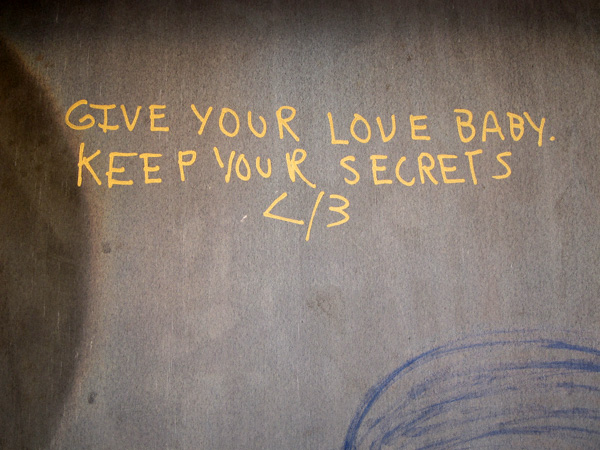 GIVE YOUR LOVE BABY.
KEEP YOUR SECRETS
</3